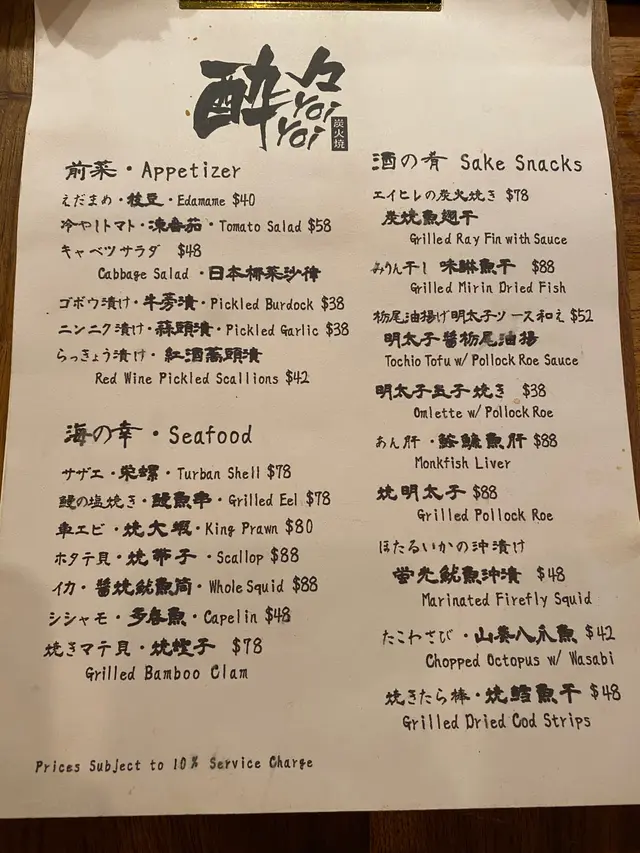 酔々
Yoi
Yoi
炭火焼
前菜・Appetizer
えだまめ・枝豆・Edamame $40
冷やしトマト・凍番茄・Tomato Salad $58
キャベツサラダ $48
Cabbage Salad・日本椰菜沙律
ゴボウ漬け・牛蒡漬・Pickled Burdock $38
ニンニク漬け・蒜頭漬・Pickled Garlic $38
らっきょう漬け・紅酒蕎頭漬
Red Wine Pickled Scallions $42
海の幸・Seafood
サザエ・栄螺・Turban Shell $78
鰻の塩焼き・鰻魚串・Grilled Eel $78
車エビ・焼大蝦・King Prawn $80
ホタテ貝・焼帯子・Scallop $88
イカ・醤焼魷魚筒・Whole Squid $88
シシャモ・多春魚・Capelin $48
焼きマテ貝・焼蟶子 $78
Grilled Bamboo Clam
酒の肴 Sake Snacks
エイヒレの炭火焼き $78
炭焼魚翅干
Grilled Ray Fin with Sauce
みりん干し 味醂魚干 $88
Grilled Mirin Dried Fish
栃尾油揚げ明太子ソース和え $52
明太子醤栃尾油揚
Tochio Tofu w/ Pollock Roe Sauce
明太子玉子焼き $38
Omlette w/ Pollock Roe
あん肝・鮟鱇魚肝 $88
Monkfish Liver
焼明太子 $88
Grilled Pollock Roe
ほたるいかの沖漬け
蛍光魷魚沖漬 $48
Marinated Firefly Squid
たこわさび・山葵八爪魚 $42
Chopped Octopus w/ Wasabi
焼きたら棒・焼鱈魚干 $48
Grilled Dried Cod Strips
Prices Subject to 10% Service Charge